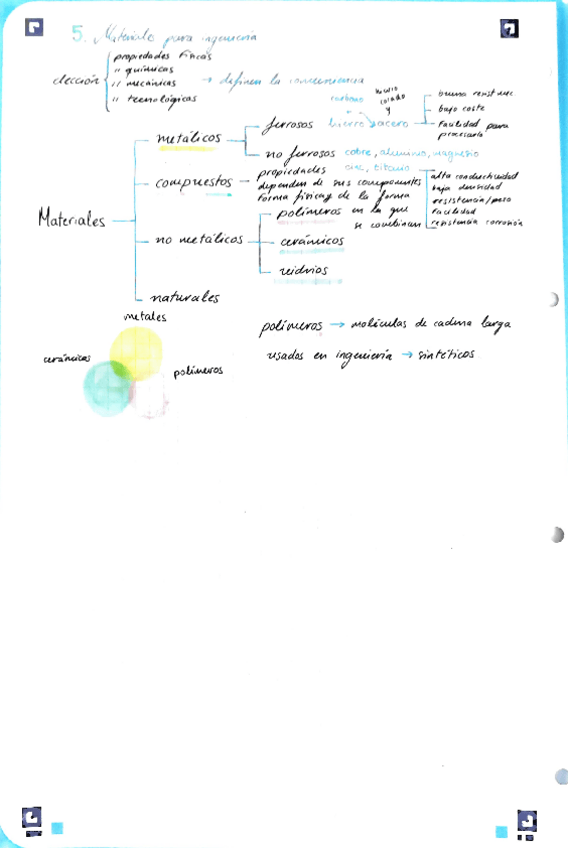 5. Materiales para ingeniería
elección
propiedades físicas
" químicas
" mecánicas
" tecnológicas
→ definen la
Materiales
metálicos
ferrosos
carbono
hierro
colado
y
hierro acero
buena
bajo coste
facilidad para
procesarlo
no ferrosos cobre, aluminio, magnesio
titanio
compuestos
propiedades
dependen de sus componentes
forma física y de la forma
en la que
se combinan
alta conductividad
baja densidad
resistencia/peso
facilidad
resistencia corrosión
no metálicos
polímeros
cerámicos
vidrios
naturales
metales
cerámicas
polímeros
polímeros → moléculas de cadena larga
usados en ingeniería → sintéticos